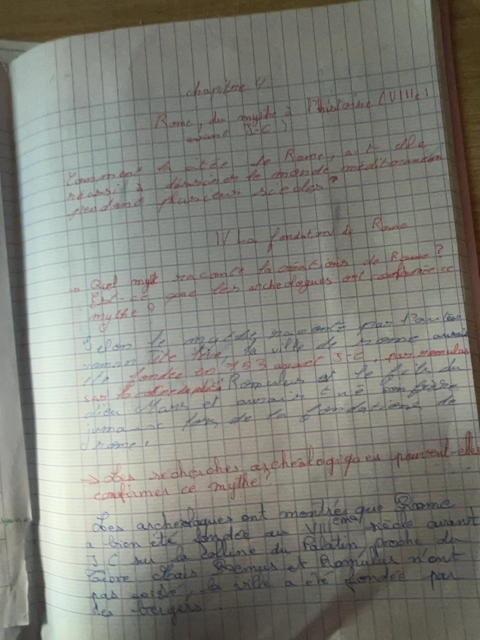 chapitre
Rome, du mythe à l'histoire (VIIIe
avant J-C)
Comment la cité de Rome, a t-elle
réussi à dominer le monde méditerranéen
pendant plusieurs siècles?
La fondation de Rome
→ Quel myt raconte la créations de Rome?
Est-ce que les archéologues ont confirmé ce
mythe?
Selon le mythe raconté par
romain Tite Live, la ville de Rome aurait
été fondée en 753 avant J-C. par romulus
sur le Romulus est le fils du
dieu Mars et aurait tué son frère
lors de la fondations de
Rome.
→ Les recherches archéologiques peuvent-elle
confirmer ce mythe?
Les archéologues ont montrés que Rome
a bien été fondée au VIIIème siècle avant
J-C sur la colline du Palatin, proche du
Mais Remus et Romulus n'ont
pas existé, la ville a été fondée par
des bergers.